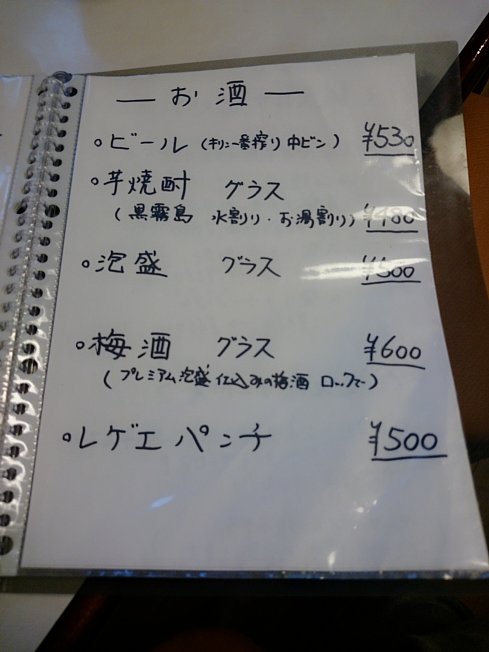 — お酒 —
○ビール (キリン一番搾り 中ビン) ¥530
○芋焼酎 グラス
(黒霧島 水割り・お湯割り) ¥480
○泡盛 グラス ¥500
○梅酒 グラス ¥600
(プレミアム泡盛仕込みの梅酒 ロックで)
○レゲエパンチ ¥500